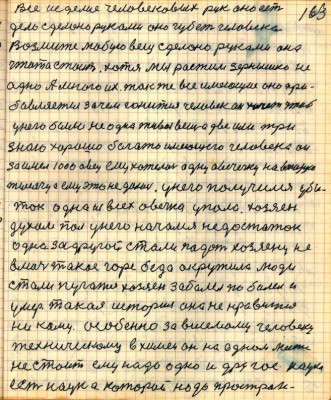 163
Все исделие человековых рук оно ест
дель сделоно руками оно губет человека
Возмите любую вещ сделоно руками она
чтото стоит. хотя мы растим зернышко не
одно А много их. так те все имеющие оно при-
бавляется зачем гонится человек он хочет чтоб
унего было не одна такая вещ а две или три
знаю хорошо богато имеющего человека он
заимел 1000 овец ему хотелос одну овечечку на
тысячу а ему это не дают. унего получился убы-
ток одна из всех овечка упала. хозяен
духом пал унего начался недостаток
одна за другой стали падат хозяену не
в мач такое горе беда окружила люди
стали пугатя хозяен заболел по болел и
умер такая история она не нравится
ни кому. особенно зависемому человеку
техническому в химеи он на одном мести
не стоит ему надо одно и другое наука
ест наука которой надо простран-